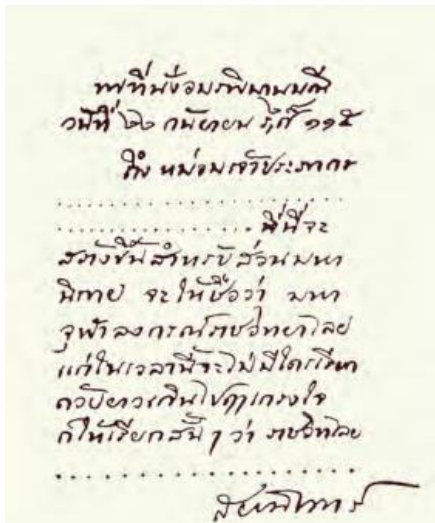 พฯที่นั่งอมรพิมานมณี
วันที่ ๒๒ กันยายน ร,ศ ๑๑๕
ถึง หม่อมเจ้าประภากร
........................
................ ที่นี่จะ
สร้างขึ้นสำหรับส่วนมหา
นิกาย จะให้ชื่อว่า มหา
จุฬาลงกรณ์ราชวิทยาไลย
แต่ในเวลานี้จะไม่มีใครเรียก
ด้วยยาวเกินไปฤาเกรงใจ
ก็ให้เรียกสั้น ๆ ว่า ราชวิทไลย
........................
สยามินทร์